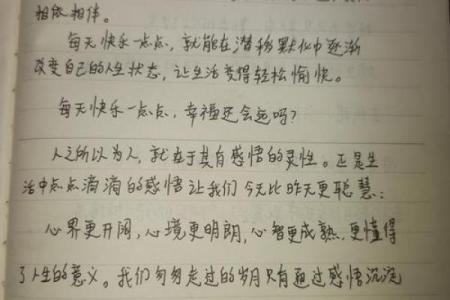 相依相伴。
每天快乐一点点，就能在潜移默化中逐渐
改变自己的人生状态，让生活变得轻松愉快。
每天快乐一点点，幸福还会远吗？
人之所以为人，就在于其有感悟的灵性。正是生
活中点点滴滴的感悟让我们今天比昨天更聪慧：
心界更开阔，心境更明朗，心智更成熟，更懂得
了人生的意义。我们匆匆走过的岁月只有通过感悟沉淀